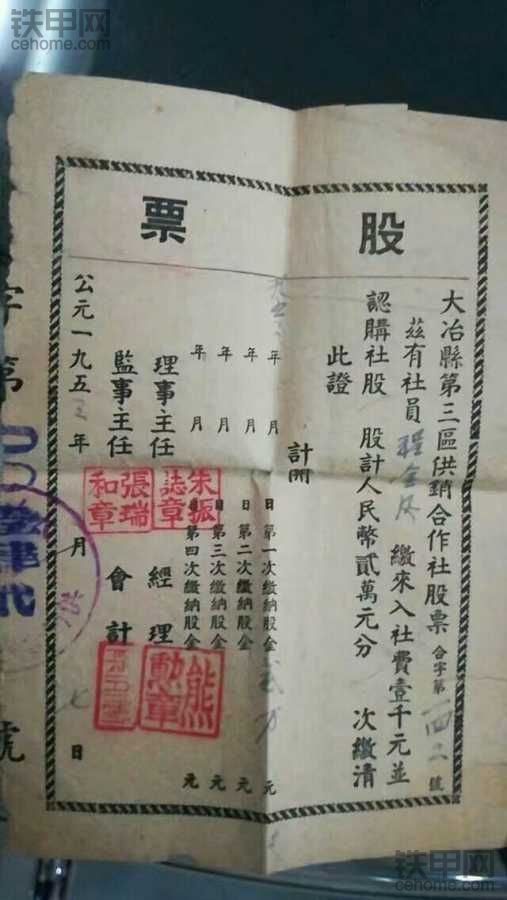 铁甲网
cehome.com
股票
大冶縣第三區供銷合作社股票 合字第一四二號
茲有社員程金 繳來入社費壹千元並
認購社股 股計人民幣貳萬元分 次繳清
此證
計開
年 月 日第一次繳納股金貳万元
年 月 日第二次繳納股金 元
年 月 日第三次繳納股金 元
年 月 日第四次繳納股金 元
理事主任 朱振誌章 經理 熊勳章
監事主任 張瑞和章 會計
公元一九五三年 月 七日
字第 號
铁甲网
cehome.com